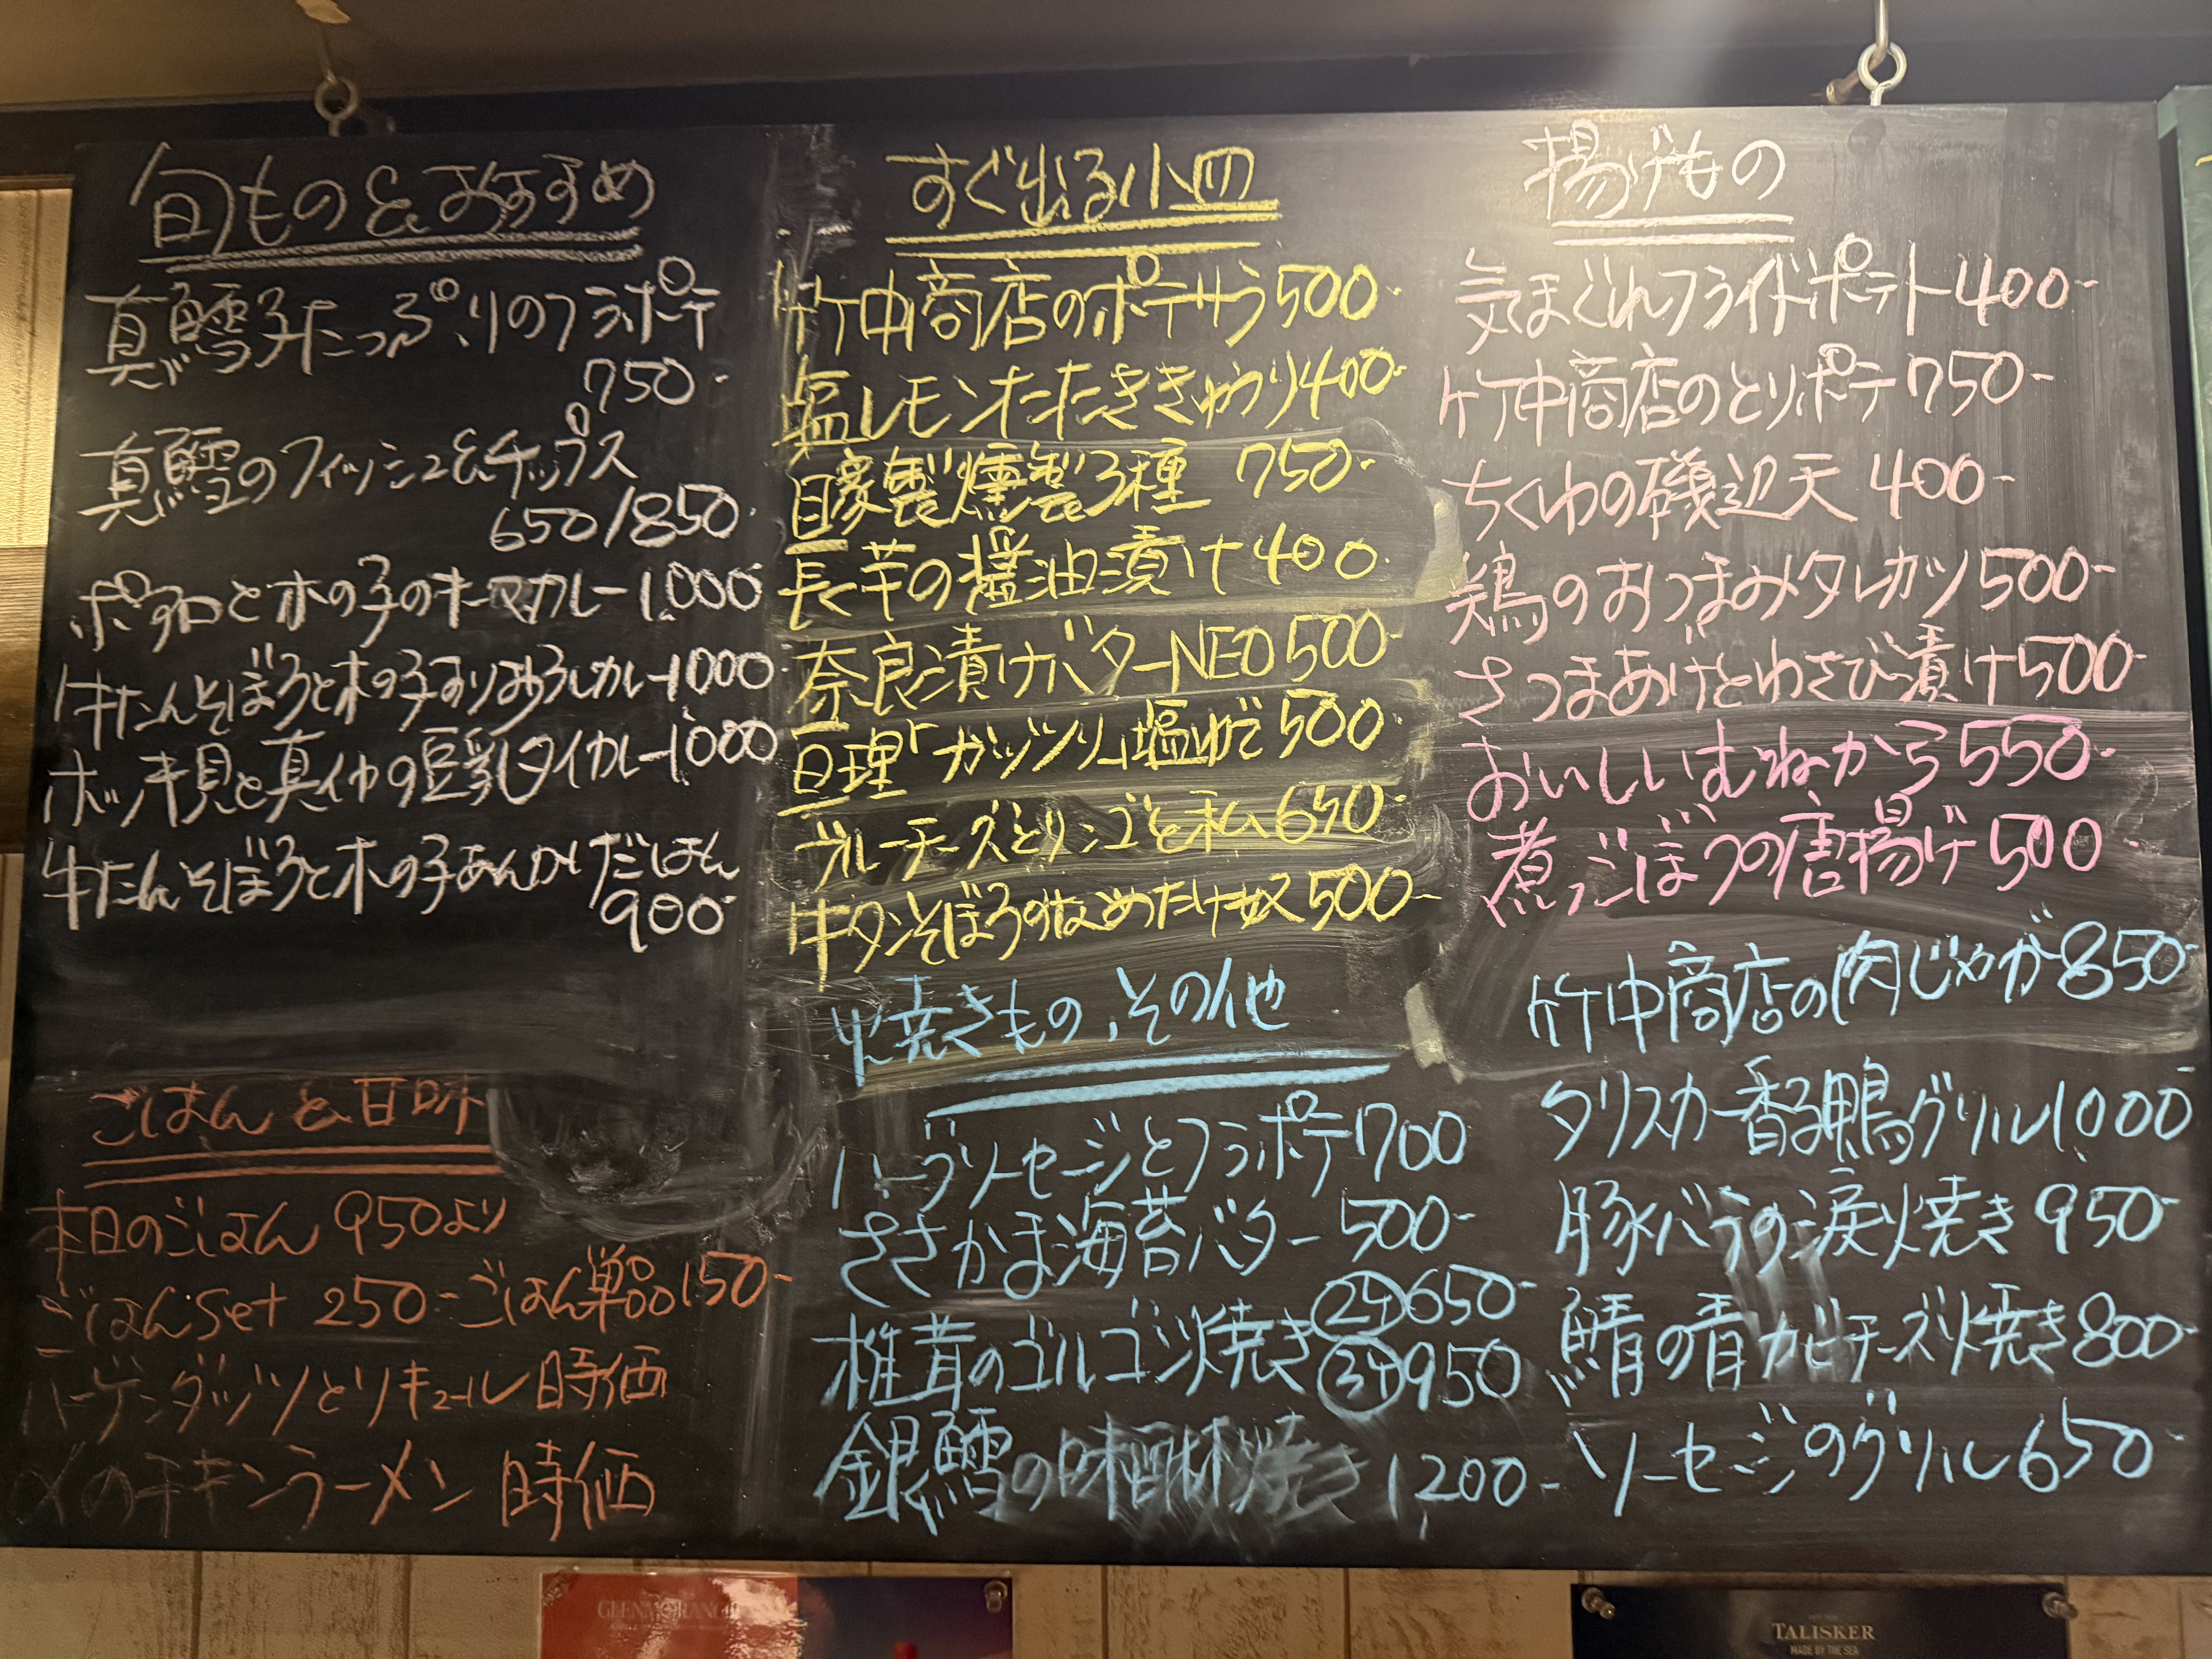 旬もの&おすすめ
真鱈子たっぷりのフラポテ
750-
真鱈のフィッシュ&チップス
650/850-
ポテトと木の子のキーマカレー1,000-
牛たんそぼろと木の子すりみカレー1,000-
ホッキ貝と真イカの豆乳タイカレー1,000-
牛たんそぼろと木の子あんかけだしごはん
900-
ごはん&甘味
本日のごはん 950より
ごはんset 250- ごはん単品150-
ハーゲンダッツとリキュール 時価
〆のチキンラーメン 時価
すぐ出る小皿
竹中商店のポテサラ500-
塩レモンたたききゅうり400-
自家製燻製3種 750-
長芋の醤油漬け400-
奈良漬けバターNEO500-
亘理「ガッツリ」塩ゆで500-
ブルーチーズとリンゴと私650-
牛タンそぼろのなめたけ奴500-
焼きもの、その他
ハーブソーセージとフラポテ700
ささかま海苔バター500-
椎茸のゴルゴン焼き②ケ650-
③ケ950
銀鱈の味醂焼き 1,200-
揚げもの
気まぐれフライドポテト400-
竹中商店のとりポテ750-
ちくわの磯辺天 400-
鶏のおつまみタレカツ500-
さつまあげとわさび漬け500-
おいしいむねから550-
煮ごぼうの唐揚げ500
竹中商店の肉じゃが850-
タリスカー香る鴨グリル1,000-
豚バラの涙焼き 950-
鯖の青カビチーズ焼き800-
ソーセージのグリル650
GLENMORANGIE
TALISKER
MADE BY THE SEA